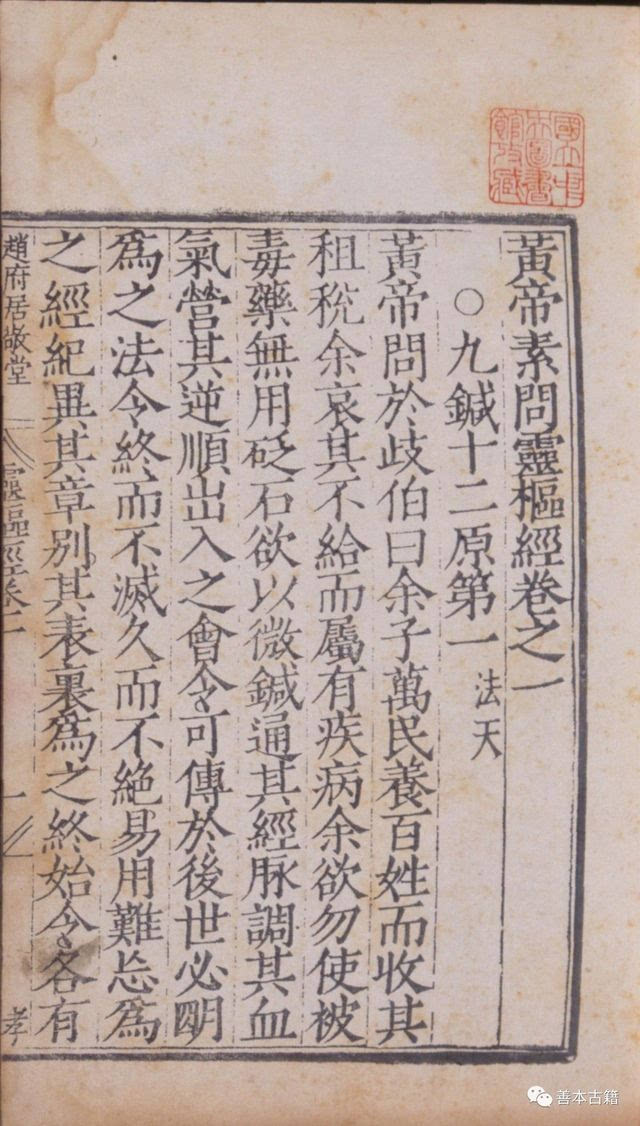 黃帝素問靈樞經卷之一
○九鍼十二原第一 法天
黃帝問於歧伯曰余子萬民養百姓而收其
租稅余哀其不給而屬有疾病余欲勿使被
毒藥無用砭石欲以微鍼通其經脉調其血
氣營其逆順出入之會令可傳於後世必明
為之法令終而不滅久而不絕易用難忘為
之經紀異其章別其表裏為之終始令各有
趙府居敬堂
靈樞經卷一
一
孝
國立中
央圖書
館收藏
善本古籍